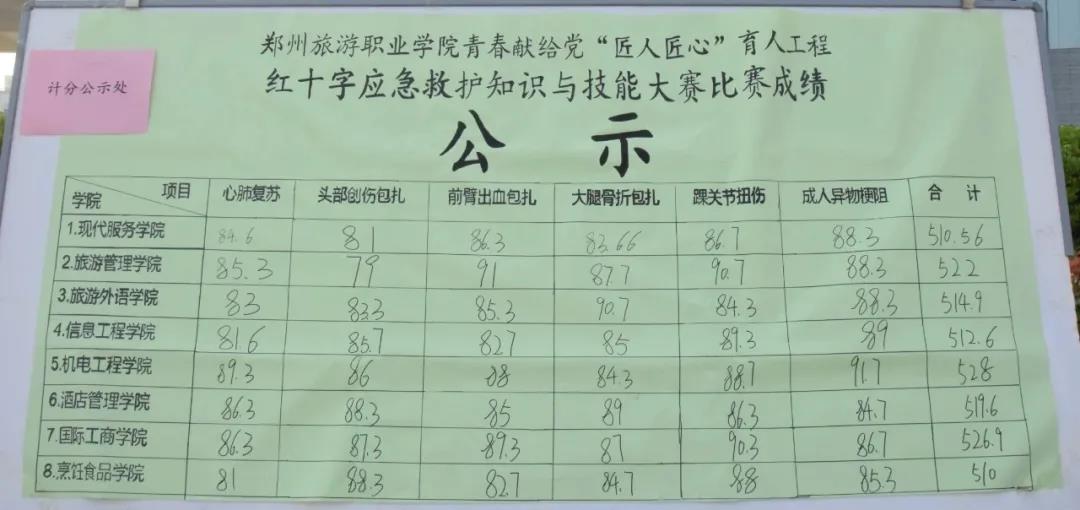 计分公示处
郑州旅游职业学院青春献给党“匠人匠心”育人工程
红十字应急救护知识与技能大赛比赛成绩
公示
学院 项目 心肺复苏 头部创伤包扎 前臂出血包扎 大腿骨折包扎 踝关节扭伤 成人异物梗阻 合计
1.现代服务学院 84.6 81 86.3 83.66 86.7 88.3 510.56
2.旅游管理学院 85.3 79 91 87.7 90.7 88.3 522
3.旅游外语学院 83 83.3 85.3 90.7 84.3 88.3 514.9
4.信息工程学院 81.6 85.7 82.7 85 89.3 89 512.6
5.机电工程学院 89.3 86 88 84.3 88.7 91.7 528
6.酒店管理学院 86.3 88.3 85 89 86.3 84.7 519.6
7.国际工商学院 86.3 87.3 89.3 87 90.3 86.7 526.9
8.烹饪食品学院 81 88.3 82.7 84.7 88 85.3 510